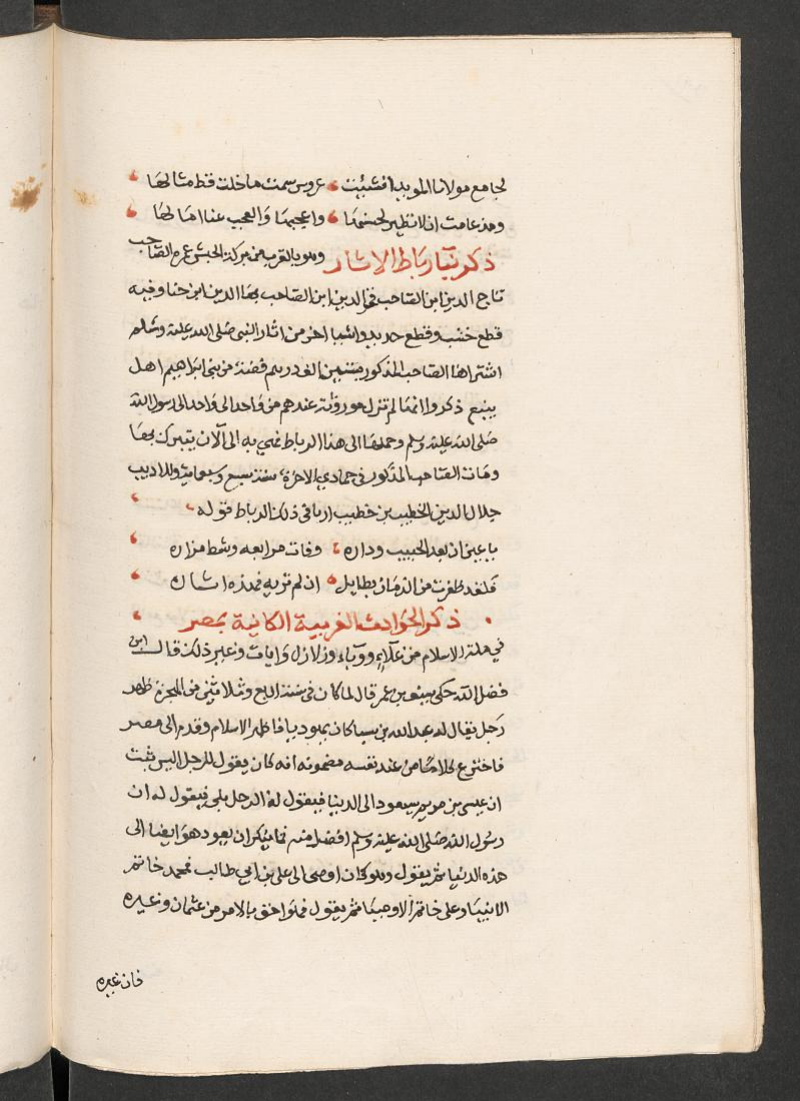 لجامع مولانا المويد انشيئت عروس سمت ما خلت قط مثالها
ومذ علمت ان لا نظير لحسنها واعجبها والعجب عنا امالها
ذكر بنا رباط الاثار وهو بالقرب من بركة الحبش عمره الصاحب
تاج الدين ابن الصاحب فخر الدين ابن الصاحب بها الدين ابن حنا وفيه
قطع خشب وقطع حديد واشيا اخر من اثار النبي صلى الله عليه وسلم
اشتراها الصاحب المذكور بستين الف درهم فضة من بني ابراهيم اهل
ينبع ذكروا انها لم تزل موروثة عندهم من واحد الى واحد الى رسول الله
صلى الله عليه وسلم وحملها الى هذا الرباط فهي به الى الآن يتبرك بها
ومات الصاحب المذكور في جمادي الاخرة سنة سبع وسبعماية وللاديب
جلال الدين الخطيب بن خطيب داريا في ذلك الرباط قوله
يا عين ان بعد الحبيب وداره وفات مرابعه وشط مزاره
فلقد ظفرت من الزمان بطايل ان لم تريه فهذه اثاره
ذكر الحوادث الغريبة الكاينة بمصر
في ملة الاسلام من غلاء ووباء وزلازل وايات وغير ذلك قال ابن
فضل الله حكى سيف بن عمر قال لما كان في سنة اربع وثلاثين من الهجرة ظهر
رجل يقال له عبد الله بن سبا كان يهوديا فاظهر الاسلام وقدم الى مصر
فاخترع كلاما من عند نفسه مضمونه انه كان يقول للرجل اليس ثبت
ان عيسى بن مريم سيعود الى الدنيا فيقول له الرجل بلى فيقول له ان
رسول الله صلى الله عليه وسلم افضل منه فما ينكر ان يعود هو ايضا الى
هذه الدنيا ثم يقول وهو كان اوصى الى علي بن ابي طالب فمحمد خاتم
الانبياء وعلى خاتم الاوصيا ثم يقول فهو احق بالامر من عثمان وغيره
فان غيره